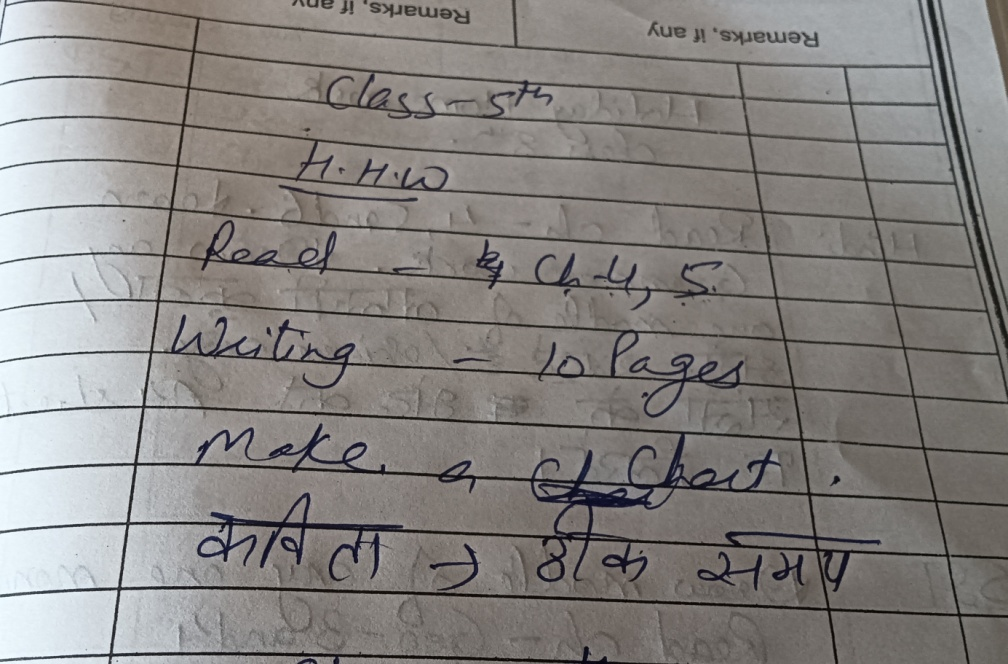 Remarks, if any Remarks, if any
Class - 5th
H.H.W
Read - Ch-4, 5.
Writing - 10 Pages
Make a Chart.
कविता → ठीक समय